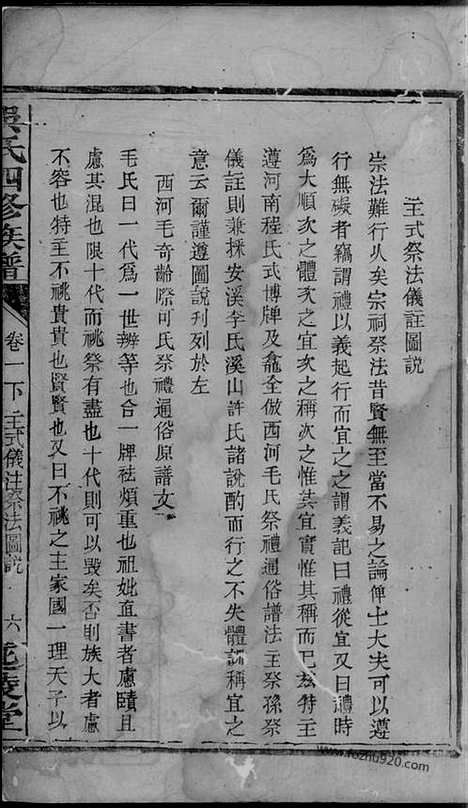 主式祭法儀註圖說
宗法難行久矣宗祠祭法昔賢無至當不易之論俾士大夫可以遵
行無礙者竊謂禮以義起行而宜之之謂義記曰禮從宜又曰禮時
爲大順次之體次之宜次之稱次之惟其宜實惟其稱而已兹特主
遵河南程氏式博牌及龕全倣西河毛氏祭禮通俗譜法主祭孫祭
儀註則兼採安溪李氏溪山許氏諸說酌而行之不失體 稱宜之
意云爾謹遵圖說刋列於左
西河毛奇齡際可氏祭禮通俗原譜文
毛氏曰一代爲一世辦等也合一牌祛煩重也祖妣直書者慮賾且
慮其混也限十代而祧祭有盡也十代則可以毀矣否則族大者慮
不容也特主不祧貴貴也賢賢也又曰不祧之主家國一理天子以
吳氏四修族譜
卷一下 主式儀注祭法圖說
六
堂
www.fozhu920.com